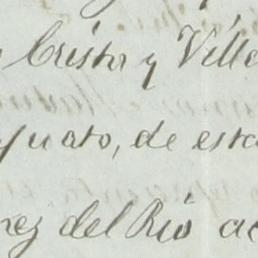 Crista y Ville
juato, de esta
nez del Rio ac